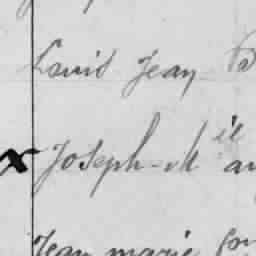 Louis Jean
x Joseph-M
Jean marie